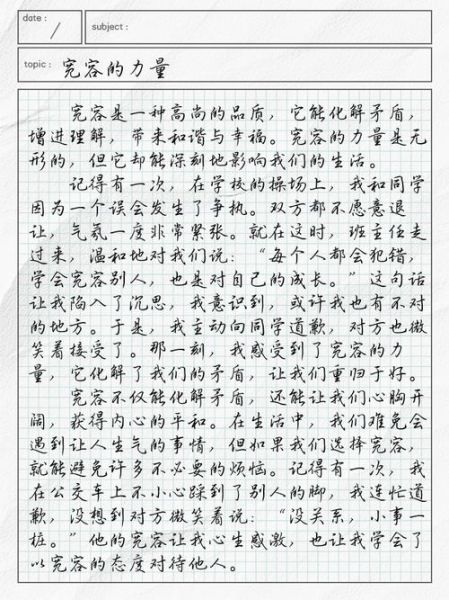 date :
subject :
topic : 宽容的力量
宽容是一种高尚的品质，它能化解矛盾，
增进理解，带来和谐与幸福。宽容的力量是无
形的，但它却能深刻地影响我们的生活。
记得有一次，在学校的操场上，我和同学
因为一个误会发生了争执。双方都不愿意退
让，气氛一度非常紧张。就在这时，班主任走
过来，温和地对我们说：“每个人都会犯错，
学会宽容别人，也是对自己的成长。”这句话
让我陷入了沉思，我意识到，或许我也有不对
的地方。于是，我主动向同学道歉，对方也微
笑着接受了。那一刻，我感受到了宽容的力
量，它化解了我们的矛盾，让我们重归于好。
宽容不仅能化解矛盾，还能让我们心胸开
阔，获得内心的平和。在生活中，我们难免会
遇到让人生气的事情，但如果我们选择宽容，
就能避免许多不必要的烦恼。记得有一次，我
在公交车上不小心踩到了别人的脚，我连忙道
歉，没想到对方微笑着说：“没关系，小事一
桩。”他的宽容让我心生感激，也让我学会了
以宽容的态度对待他人。